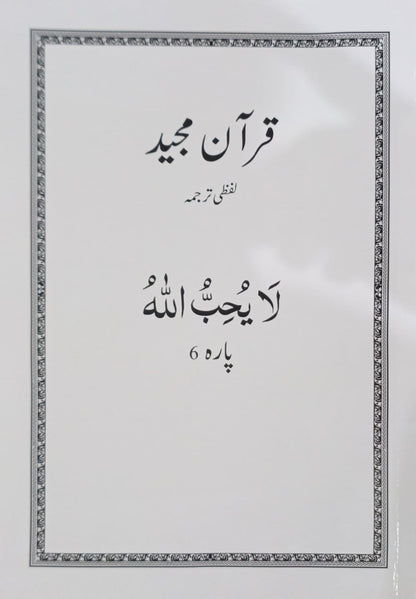 قرآن مجید
لفظی ترجمہ
لَا یُحِبُّ اللّٰہُ
پارہ 6